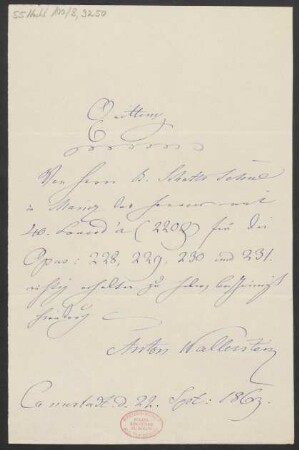 55 Nachl 100/B, 3250
Quittung
Von Herrn B. Schott's Söhne
in Mainz das Honorar mit
40. Louisd'or (220 fl) für die
Opus: 228, 229, 230 und 231.
richtig erhalten zu haben bescheinigt
hiedurch
Anton Wallerstein
Cannstatt. d. 22. Spt: 1863.